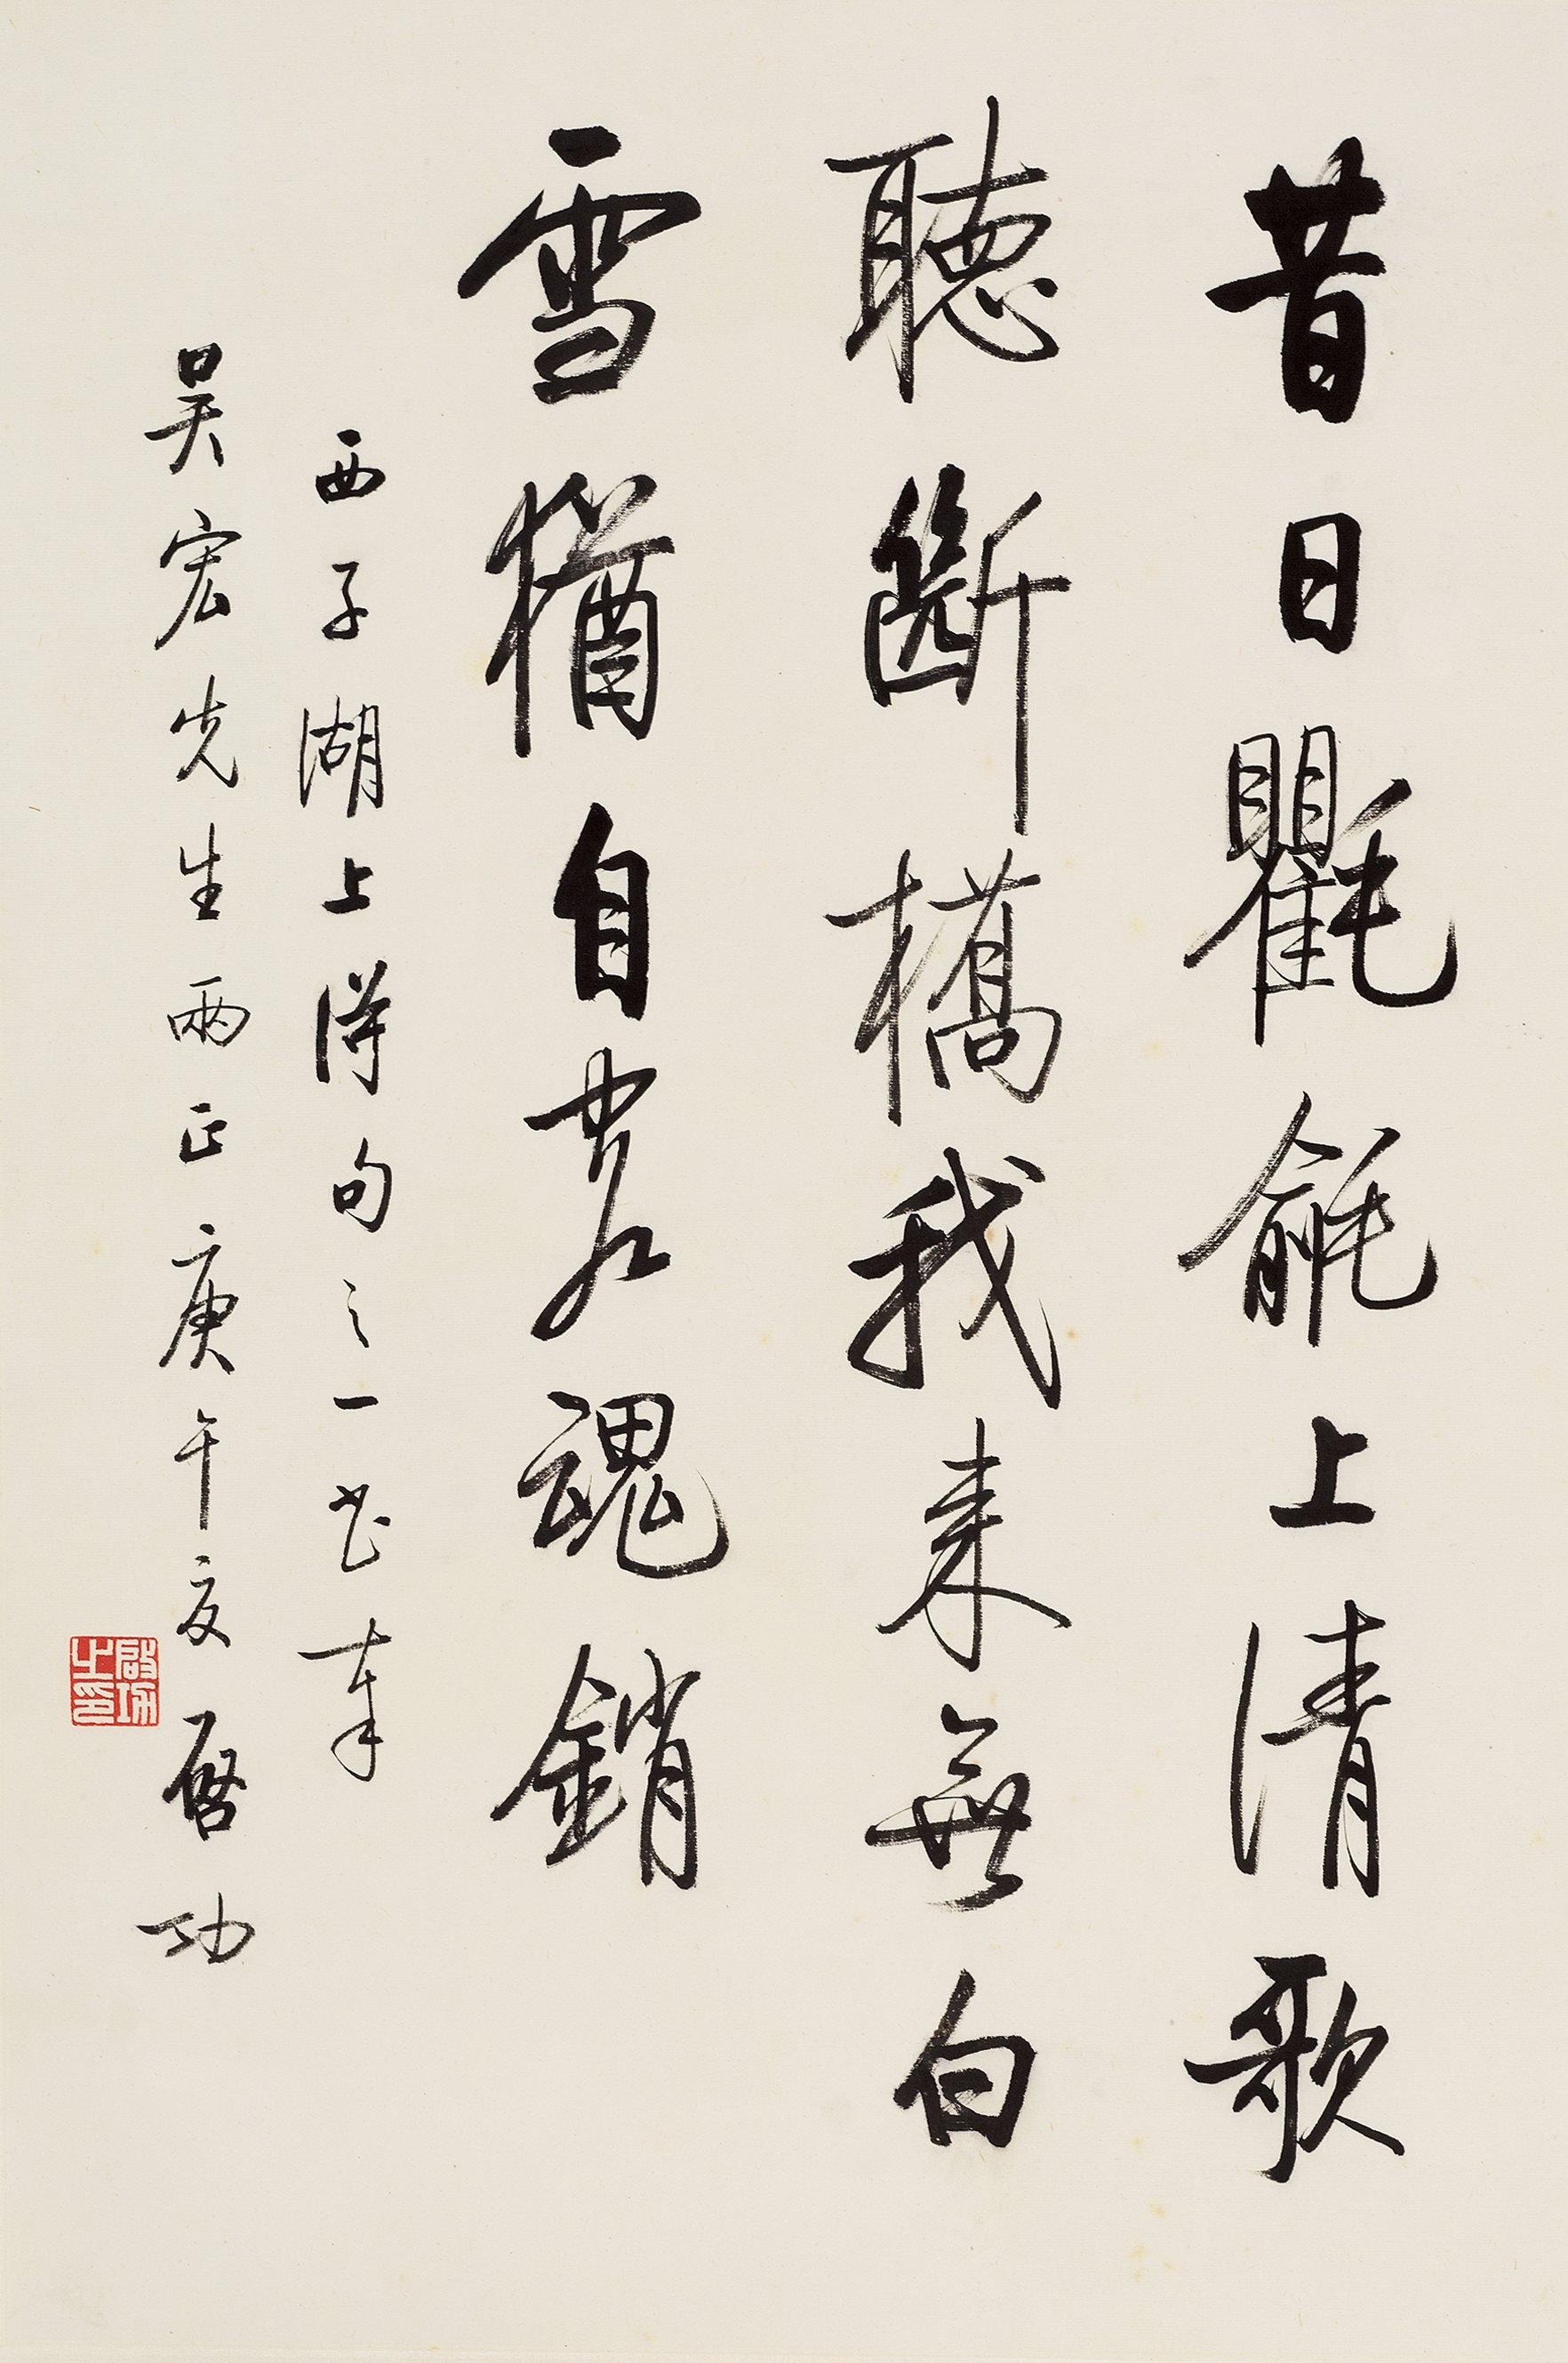 昔日氍毹上清歌
聽斷橋我來無白
雪猶自黯魂銷
西子湖上得句之一書奉
吳宏先生兩正庚午夏啓功
啟功之印